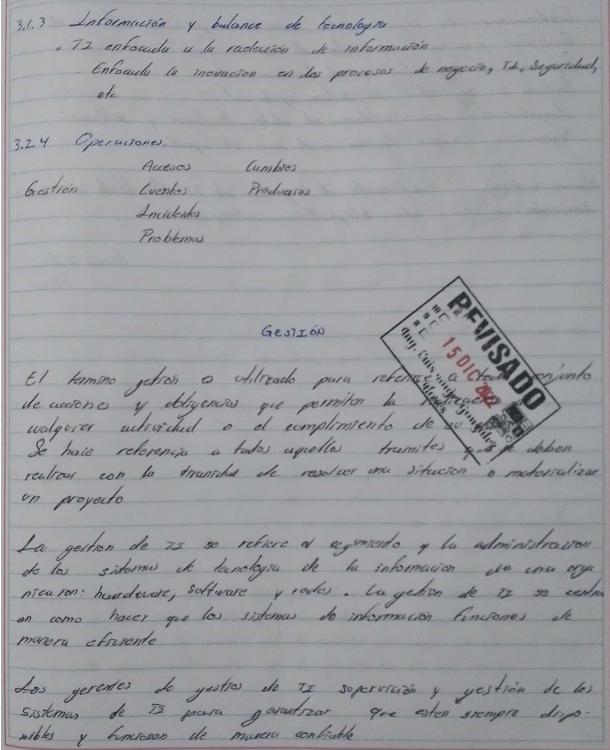 3.1.3 Información y balance de tecnologia
. TI enfocada a la reducion de información
Enfocada la inovacion en los procesos de negocio, TI, Seguridad,
etc
3.2.4 Operaciones.
Accesos Cambios
Gestión Eventos
Incidentes
Problemas
GESTIÓN
REVISADO
15 DIC 2022
Ing. Luis
El termino o utilizado para a conjunto
de acciones y que permiten la
cualquier actividad o el cumplimiento de su
Se hace referencia a todos aquellos tramites y deben
realizar con la de resolver una situacion o materializar
un proyecto
La gestion de TI se refiere al y la administracion
de los sistemas de tecnologia de la informacion de una orga
nicacion: hardware, software y redes. La gestion de TI se centra
en como hacer que los sistemas de información funciones de
manera eficiente
Los gerentes de de TI y gestión de los
Sistemas de TI para garantizar que esten siempre dispo-
nibles y funcionan de manera confiable